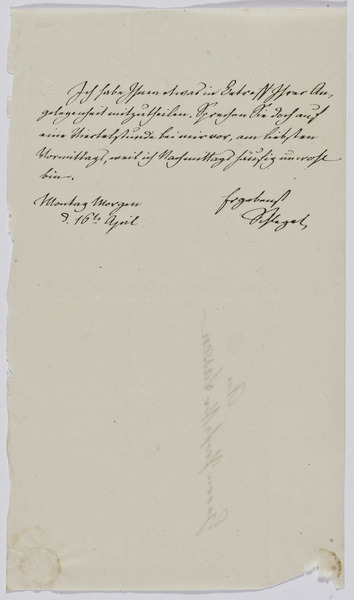 Ich habe Ihnen etwas in Betreff Ihrer An-
gelegenheit mitzutheilen. Sprechen Sie doch auf
eine Viertelstunde bei mir vor, am liebsten
Vormittags, weil ich Nachmittags häufig unwohl
bin.
Montag Morgen
d. 16ten April
Ergebenst
Schlegel